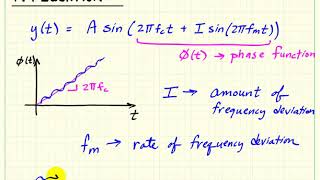 y(t) = A sin(2πf_c t + I sin(2πf_m t))
φ(t) → phase function
φ(t)
2πf_c
t
I → amount of
frequency deviation
f_m → rate of frequency deviation